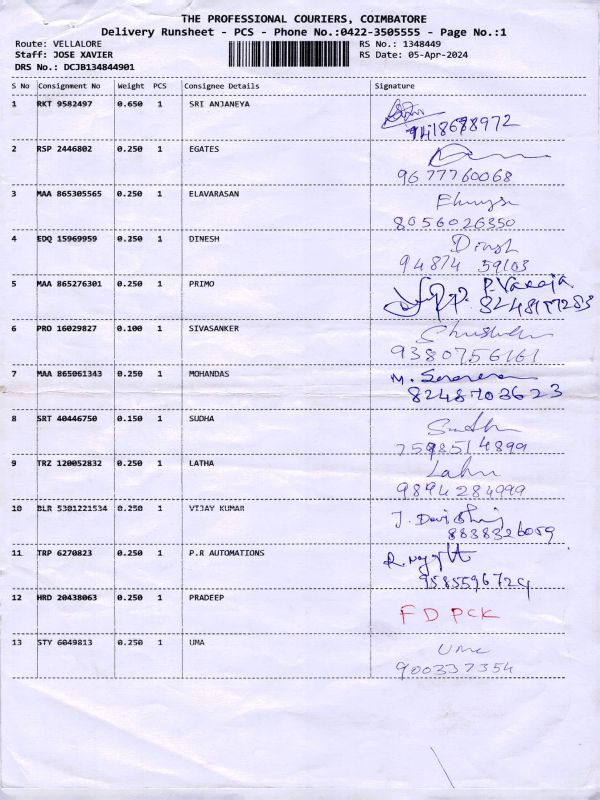 THE PROFESSIONAL COURIERS, COIMBATORE
Delivery Runsheet - PCS - Phone No.:0422-3505555 - Page No.:1
Route: VELLALORE
Staff: JOSE XAVIER
DRS No.: DCJB134844901
RS No.: 1348449
RS Date: 05-Apr-2024
S No Consignment No Weight PCS Consignee Details Signature
1 RKT 9582497 0.650 1 SRI ANJANEYA
9418688972
2 RSP 2446802 0.250 1 EGATES
9677760068
3 MAA 865305565 0.250 1 ELAVARASAN
8056026350
4 EDQ 15969959 0.250 1 DINESH Dinesh
94874 59103
5 MAA 865276301 0.250 1 PRIMO
8248197283
6 PRO 16029827 0.100 1 SIVASANKER
9380756161
7 MAA 865061343 0.250 1 MOHANDAS M.
8248703623
8 SRT 40446750 0.150 1 SUDHA Sudha
7598514899
9 TRZ 120052832 0.250 1 LATHA
9894284999
10 BLR 5301221534 0.250 1 VIJAY KUMAR J.
8838326059
11 TRP 6270823 0.250 1 P.R AUTOMATIONS
12 HRD 20438063 0.250 1 PRADEEP FD PCK
13 STY 6049813 0.250 1 UMA Uma
900337354